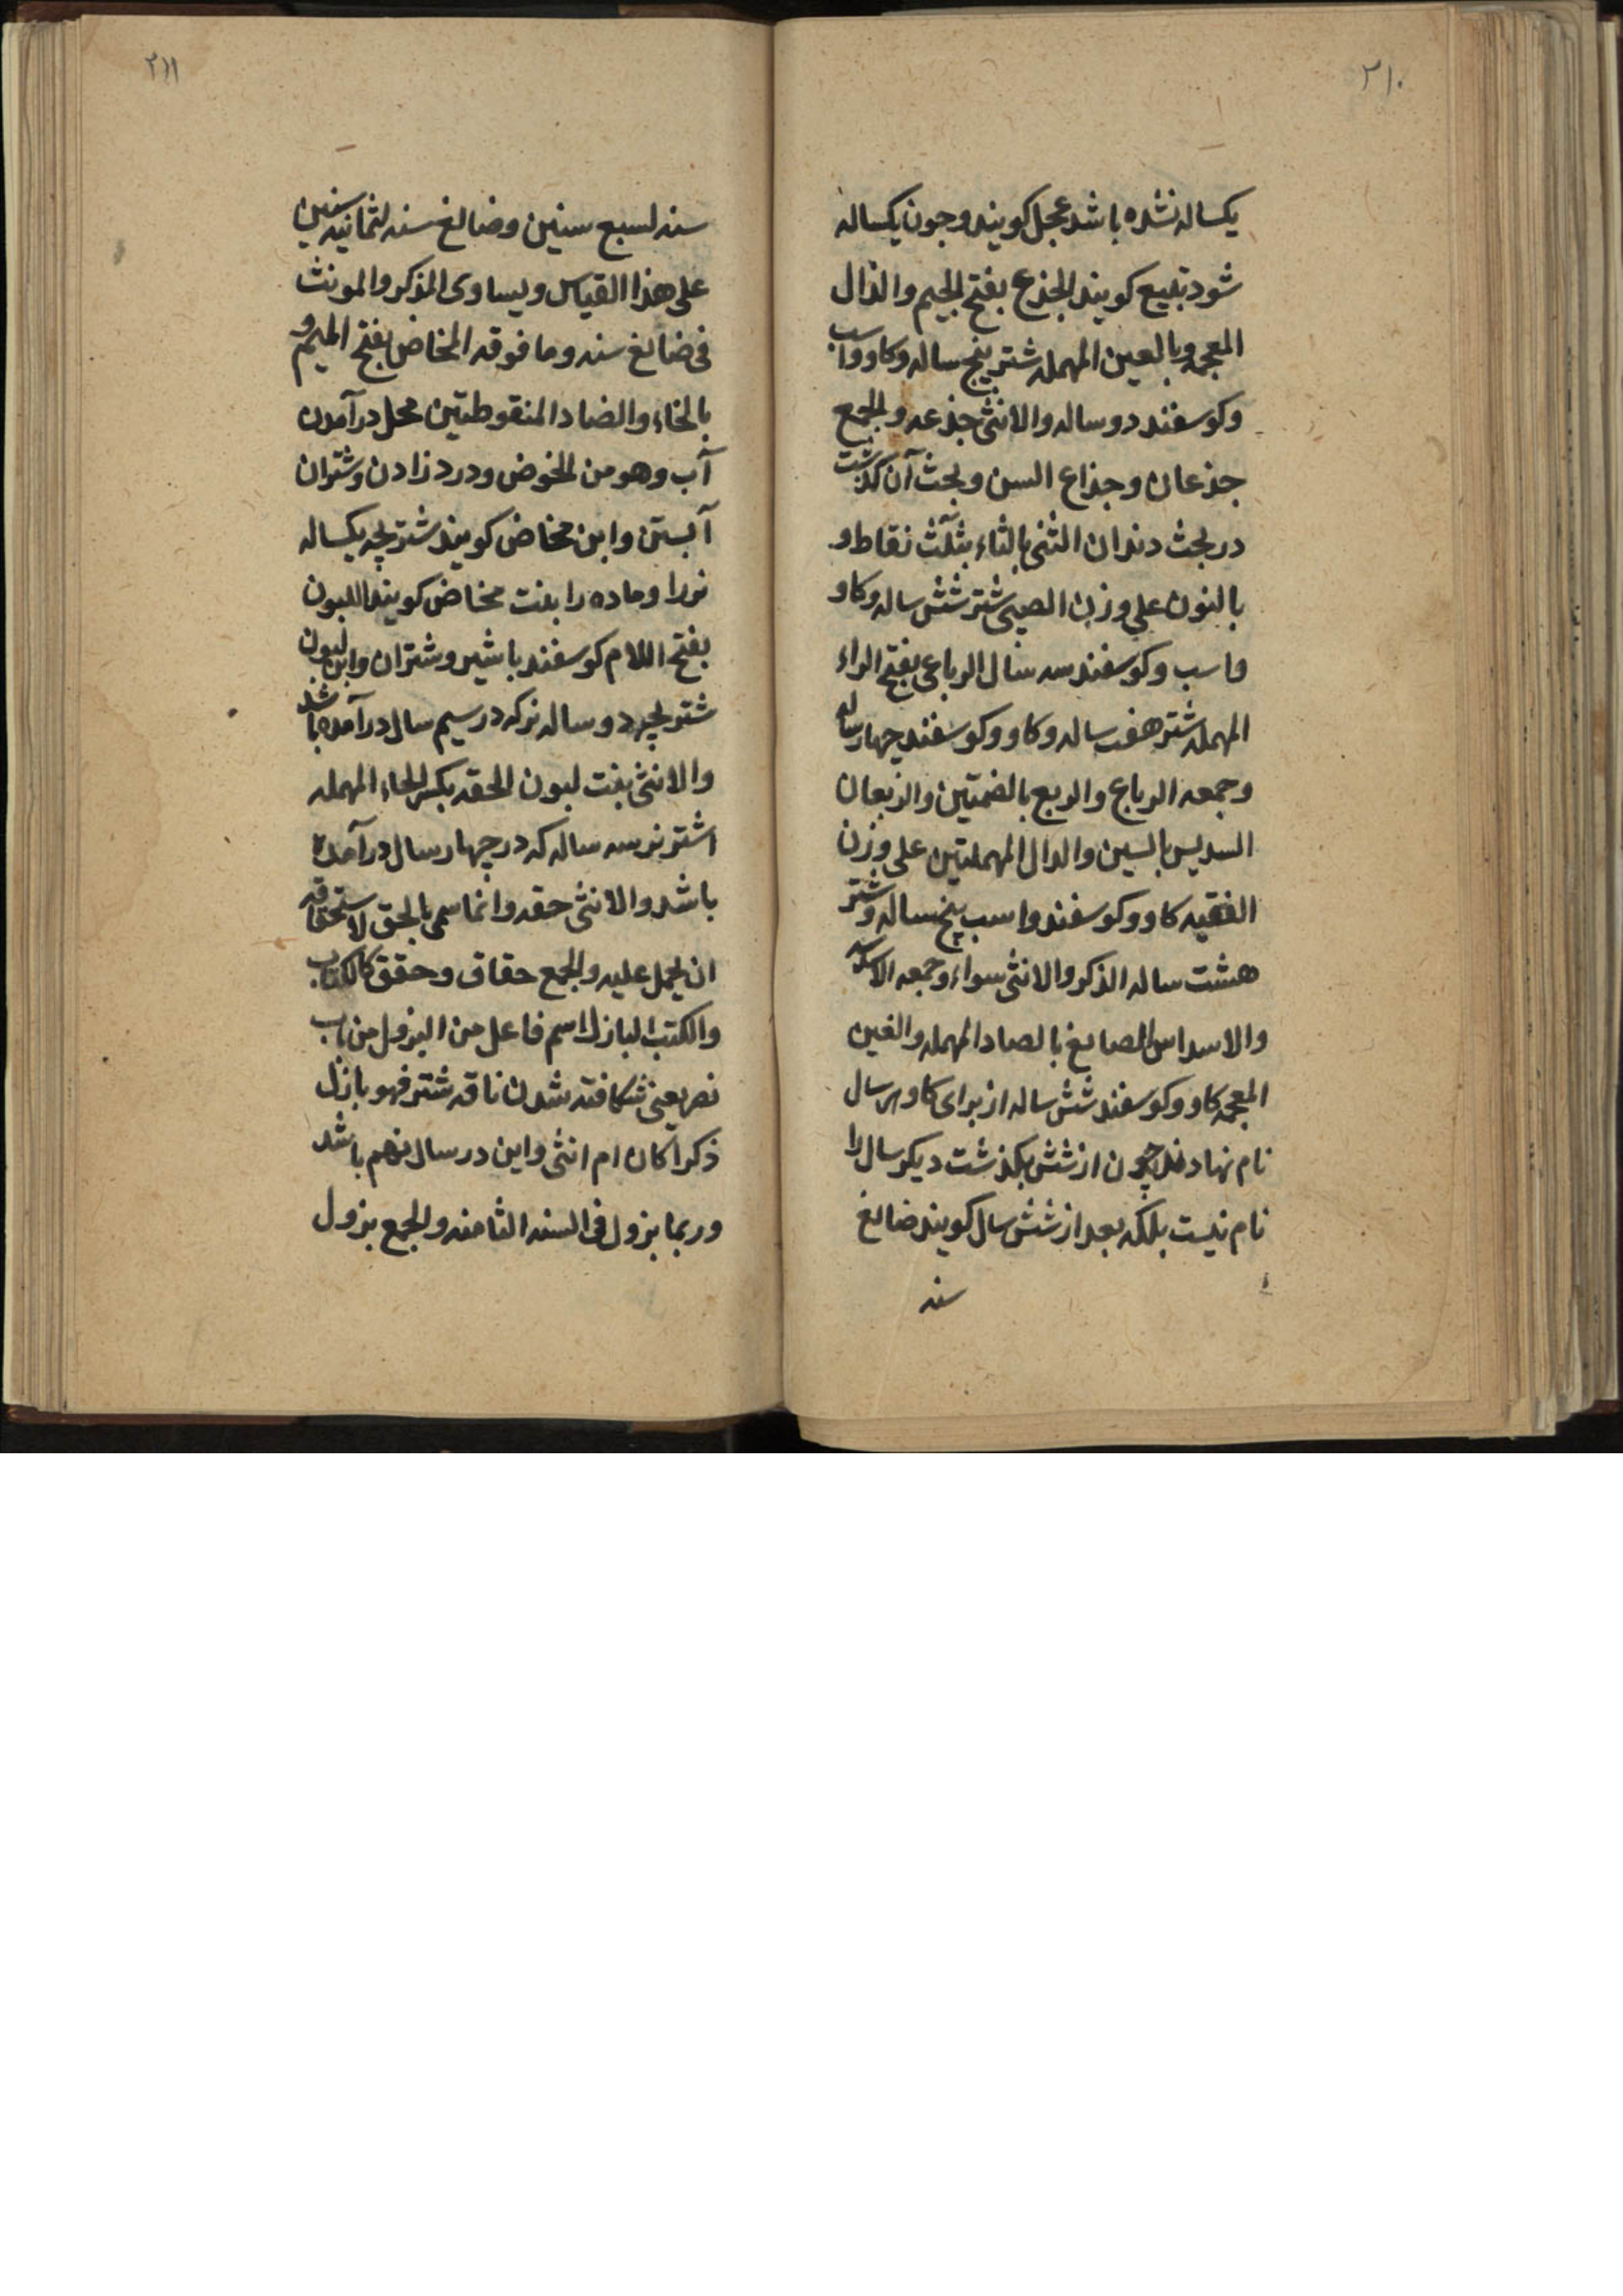 ٢١٠
یکساله نشده باشد عجل کویند وجون یکساله
شود تبیع کویند الجذع بفتح الجیم والذال
المعجمه وبالعین المهمله شتر پنج ساله وکاو واسب
وکوسفند دوساله والانثی جذعه والجمع
جذعان وجذاع السن وبحث آن کذشت
در بحث دندان الثنی بالثاء بثلث نقاط و
بالنون علی وزن الصبی شتر شش ساله وکاو
واسب وکوسفند سه سال الرباعی بفتح الراء
المهمله شتر هفت ساله وکاو وکوسفند چهار ساله
وجمعه الرباع والربع بالضمتین والربعان
السدیس بالسین والدال المهملتین علی وزن
الفقیه کاو وکوسفند واسب پنج ساله وشتر
هشت ساله الذکر والانثی سواء وجمعه الاسد
والاسداس الصایغ بالصاد المهمله والغین
المعجمه کاو وکوسفند شش ساله از برای کاو هر سال
نام نهاده اند چون از شش بکذشت دیکر سال را
نام نیست بلکه بعد از شش سال کویند ضالغ
سنه
٢١١
سنه لسبع سنین وضالغ سنه لثمانیه سنین
علی هذا القیاس ویساوی المذکر والمونث
فی ضالغ سنه وما فوقه المخاض بفتح المیم و
بالخاء والضاد المنقوطتین محل درآمدن
آب وهو من الخوض ودرد زادن وشتران
آبستن وابن مخاض کویند شتر بچه یکساله
نر را وماده را بنت مخاض کویند اللبون
بفتح اللام کوسفند باشیر وشتران وابن لبون
شتر بچه دوساله نر که در سیم سال درآمده باشد
والانثی بنت لبون الحقه بکسر الحاء المهمله
اشتر نر سه ساله که در چهار سال درآمده
باشد والانثی حقه وانما سمی بالحق لاستحقاقه
ان یحمل علیه والجمع حقاق وحقق کالکتاب
والکتب البازل اسم فاعل من البزول من باب
نصر یعنی شکافته شدن ناقه شتر فهو بازل
ذکرا کان ام انثی واین در سال نهم باشد
وربما بزول فی السنه الثامنه والجمع بزول